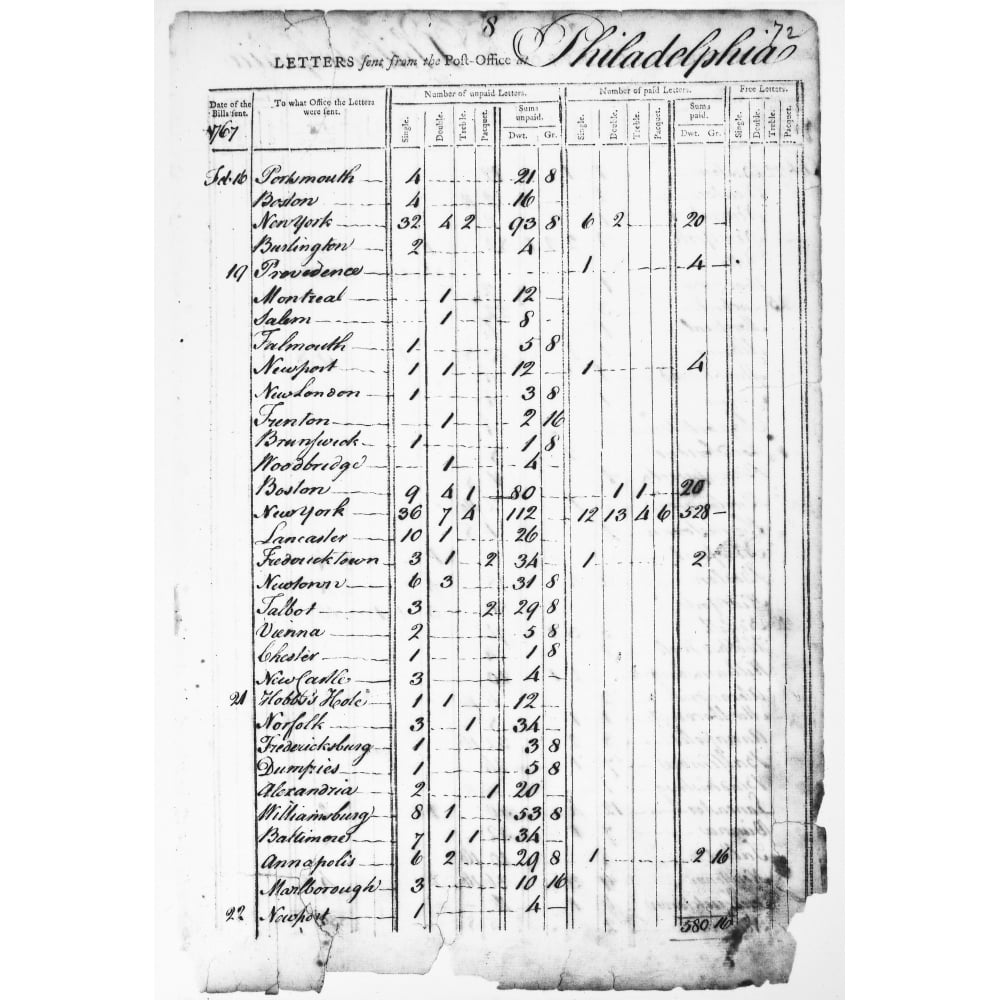 8
72
LETTERS sent from the Post-Office at Philadelphia
Date of the Bills sent. To what Office the Letters were sent. Number of unpaid Letters. Number of paid Letters. Free Letters.
Single. Double. Treble. Pacquet. Sums unpaid. Dwt. Gr. Single. Double. Treble. Pacquet. Sums paid. Dwt. Gr. Single. Double. Treble. Pacquet.
1767
Feb. 16 Portsmouth 4 21 8
Boston 4 16
New York 32 4 2 93 8 6 2 20
Burlington 2 4
19 Providence 1 4
Montreal 1 12
Salem 1 8
Falmouth 1 5 8
Newport 1 1 12 1 4
New London 1 3 8
Trenton 1 2 16
Brunswick 1 1 8
Woodbridge 1 4
Boston 9 4 1 80 1 1 20
New York 36 7 4 112 12 13 4 6 528
Lancaster 10 1 26
Fredericktown 3 1 2 34 1 2
Newtown 6 3 31 8
Talbot 3 2 29 8
Vienna 2 5 8
Chester 1 1 8
New Castle 3 4
21 Hobbs's Hole 1 1 12
Norfolk 3 1 34
Fredericksburg 1 3 8
Dumfries 1 5 8
Alexandria 2 1 20
Williamsburg 8 1 53 8
Baltimore 7 1 1 34
Annapolis 6 2 29 8 1 2 16
Marlborough 3 10 16
22 Newport 1 4
580 16